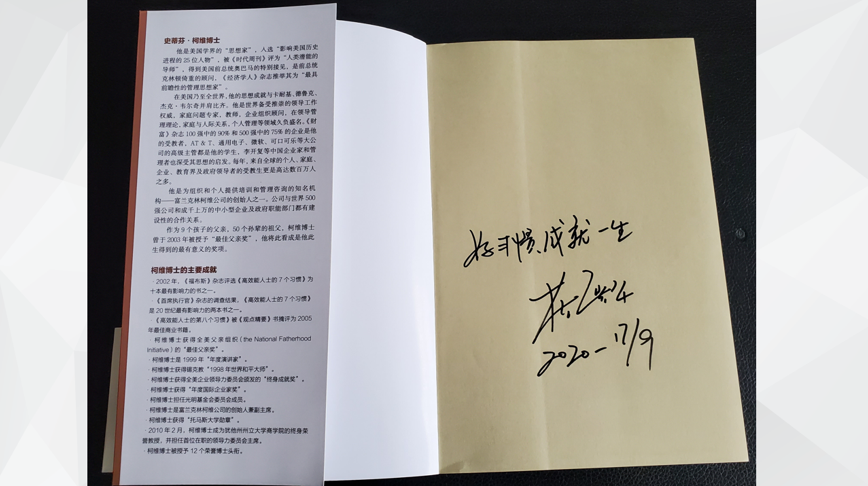 史蒂芬·柯维博士
他是美国学界的“思想家”，入选“影响美国历史
进程的25位人物”，被《时代周刊》评为“人类潜能的
导师”，得到美国前总统奥巴马的特别接见，是前总统
克林顿倚重的顾问，《经济学人》杂志推举其为“最具
前瞻性的管理思想家”。
在美国乃至全世界，他的思想成就与卡耐基、德鲁克、
杰克·韦尔奇并肩比齐。他是世界备受推崇的领导工作
权威、家庭问题专家、教师、企业组织顾问，在领导管
理理论、家庭与人际关系、个人管理等领域久负盛名。《财
富》杂志100强中的90%和500强中的75%的企业是他
的受教者，AT & T、通用电子、微软、可口可乐等大公
司的高级主管都是他的学生，李开复等中国企业家和管
理者也深受其思想的启发。每年，来自全球的个人、家庭、
企业、教育界及政府领导者的受教生更是高达数百万人
之多。
他是为组织和个人提供培训和管理咨询的知名机
构——富兰克林柯维公司的创始人之一。公司与世界500
强公司和成千上万的中小型企业及政府职能部门都有建
设性的合作关系。
作为9个孩子的父亲、50个孙辈的祖父，柯维博士
曾于2003年被授予“最佳父亲奖”，他将此看成是他此
生得到的最有意义的奖项。
柯维博士的主要成就
·2002年，《福布斯》杂志评选《高效能人士的7个习惯》为
十本最有影响力的书之一。
·《首席执行官》杂志的调查结果，《高效能人士的7个习惯》
是20世纪最有影响力的两本书之一。
·《高效能人士的第八个习惯》被《观点精要》书摘评为2005
年最佳商业书籍。
·柯维博士获得全美父亲组织（the National Fatherhood
Initiative）的“最佳父亲奖”。
·柯维博士是1999年“年度演讲家”。
·柯维博士获得锡克教“1998年世界和平大师”。
·柯维博士获得全美企业领导力委员会颁发的“终身成就奖”。
·柯维博士获得“年度国际企业家奖”。
·柯维博士担任光明基金会委员会成员。
·柯维博士是富兰克林柯维公司的创始人兼副主席。
·柯维博士获得“托马斯大学勋章”。
·2010年2月，柯维博士成为犹他州州立大学商学院的终身荣
誉教授，并担任首位在职的领导力委员会主席。
·柯维博士被授予12个荣誉博士头衔。
好习惯，成就一生
2020-17/9